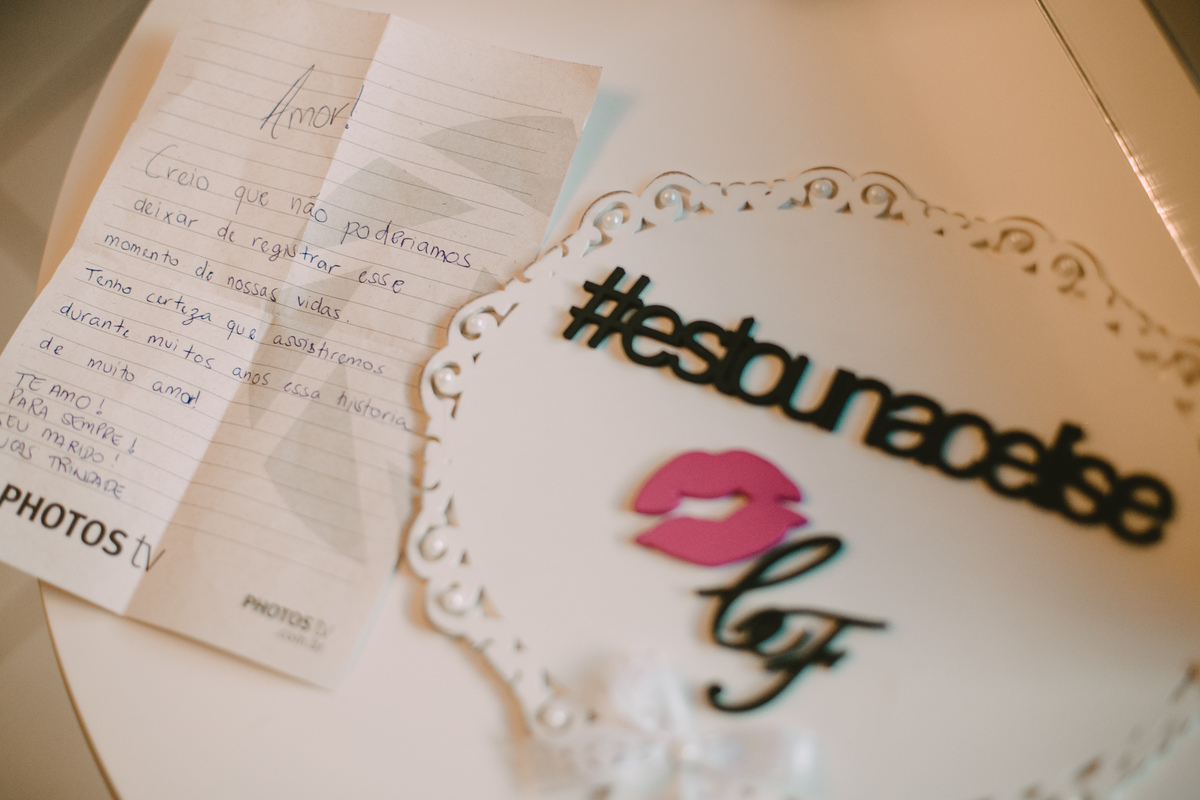 Amor!
Creio que não poderiamos
deixar de registrar esse
momento de nossas vidas.
Tenho certeza que assistiremos
durante muitos anos essa historia
de muito amor!
TE AMO!
PARA SEMPRE!
SEU MARIDO!
TRINDADE
PHOTOS tv
PHOTOS tv
.com.br
#estounacelse